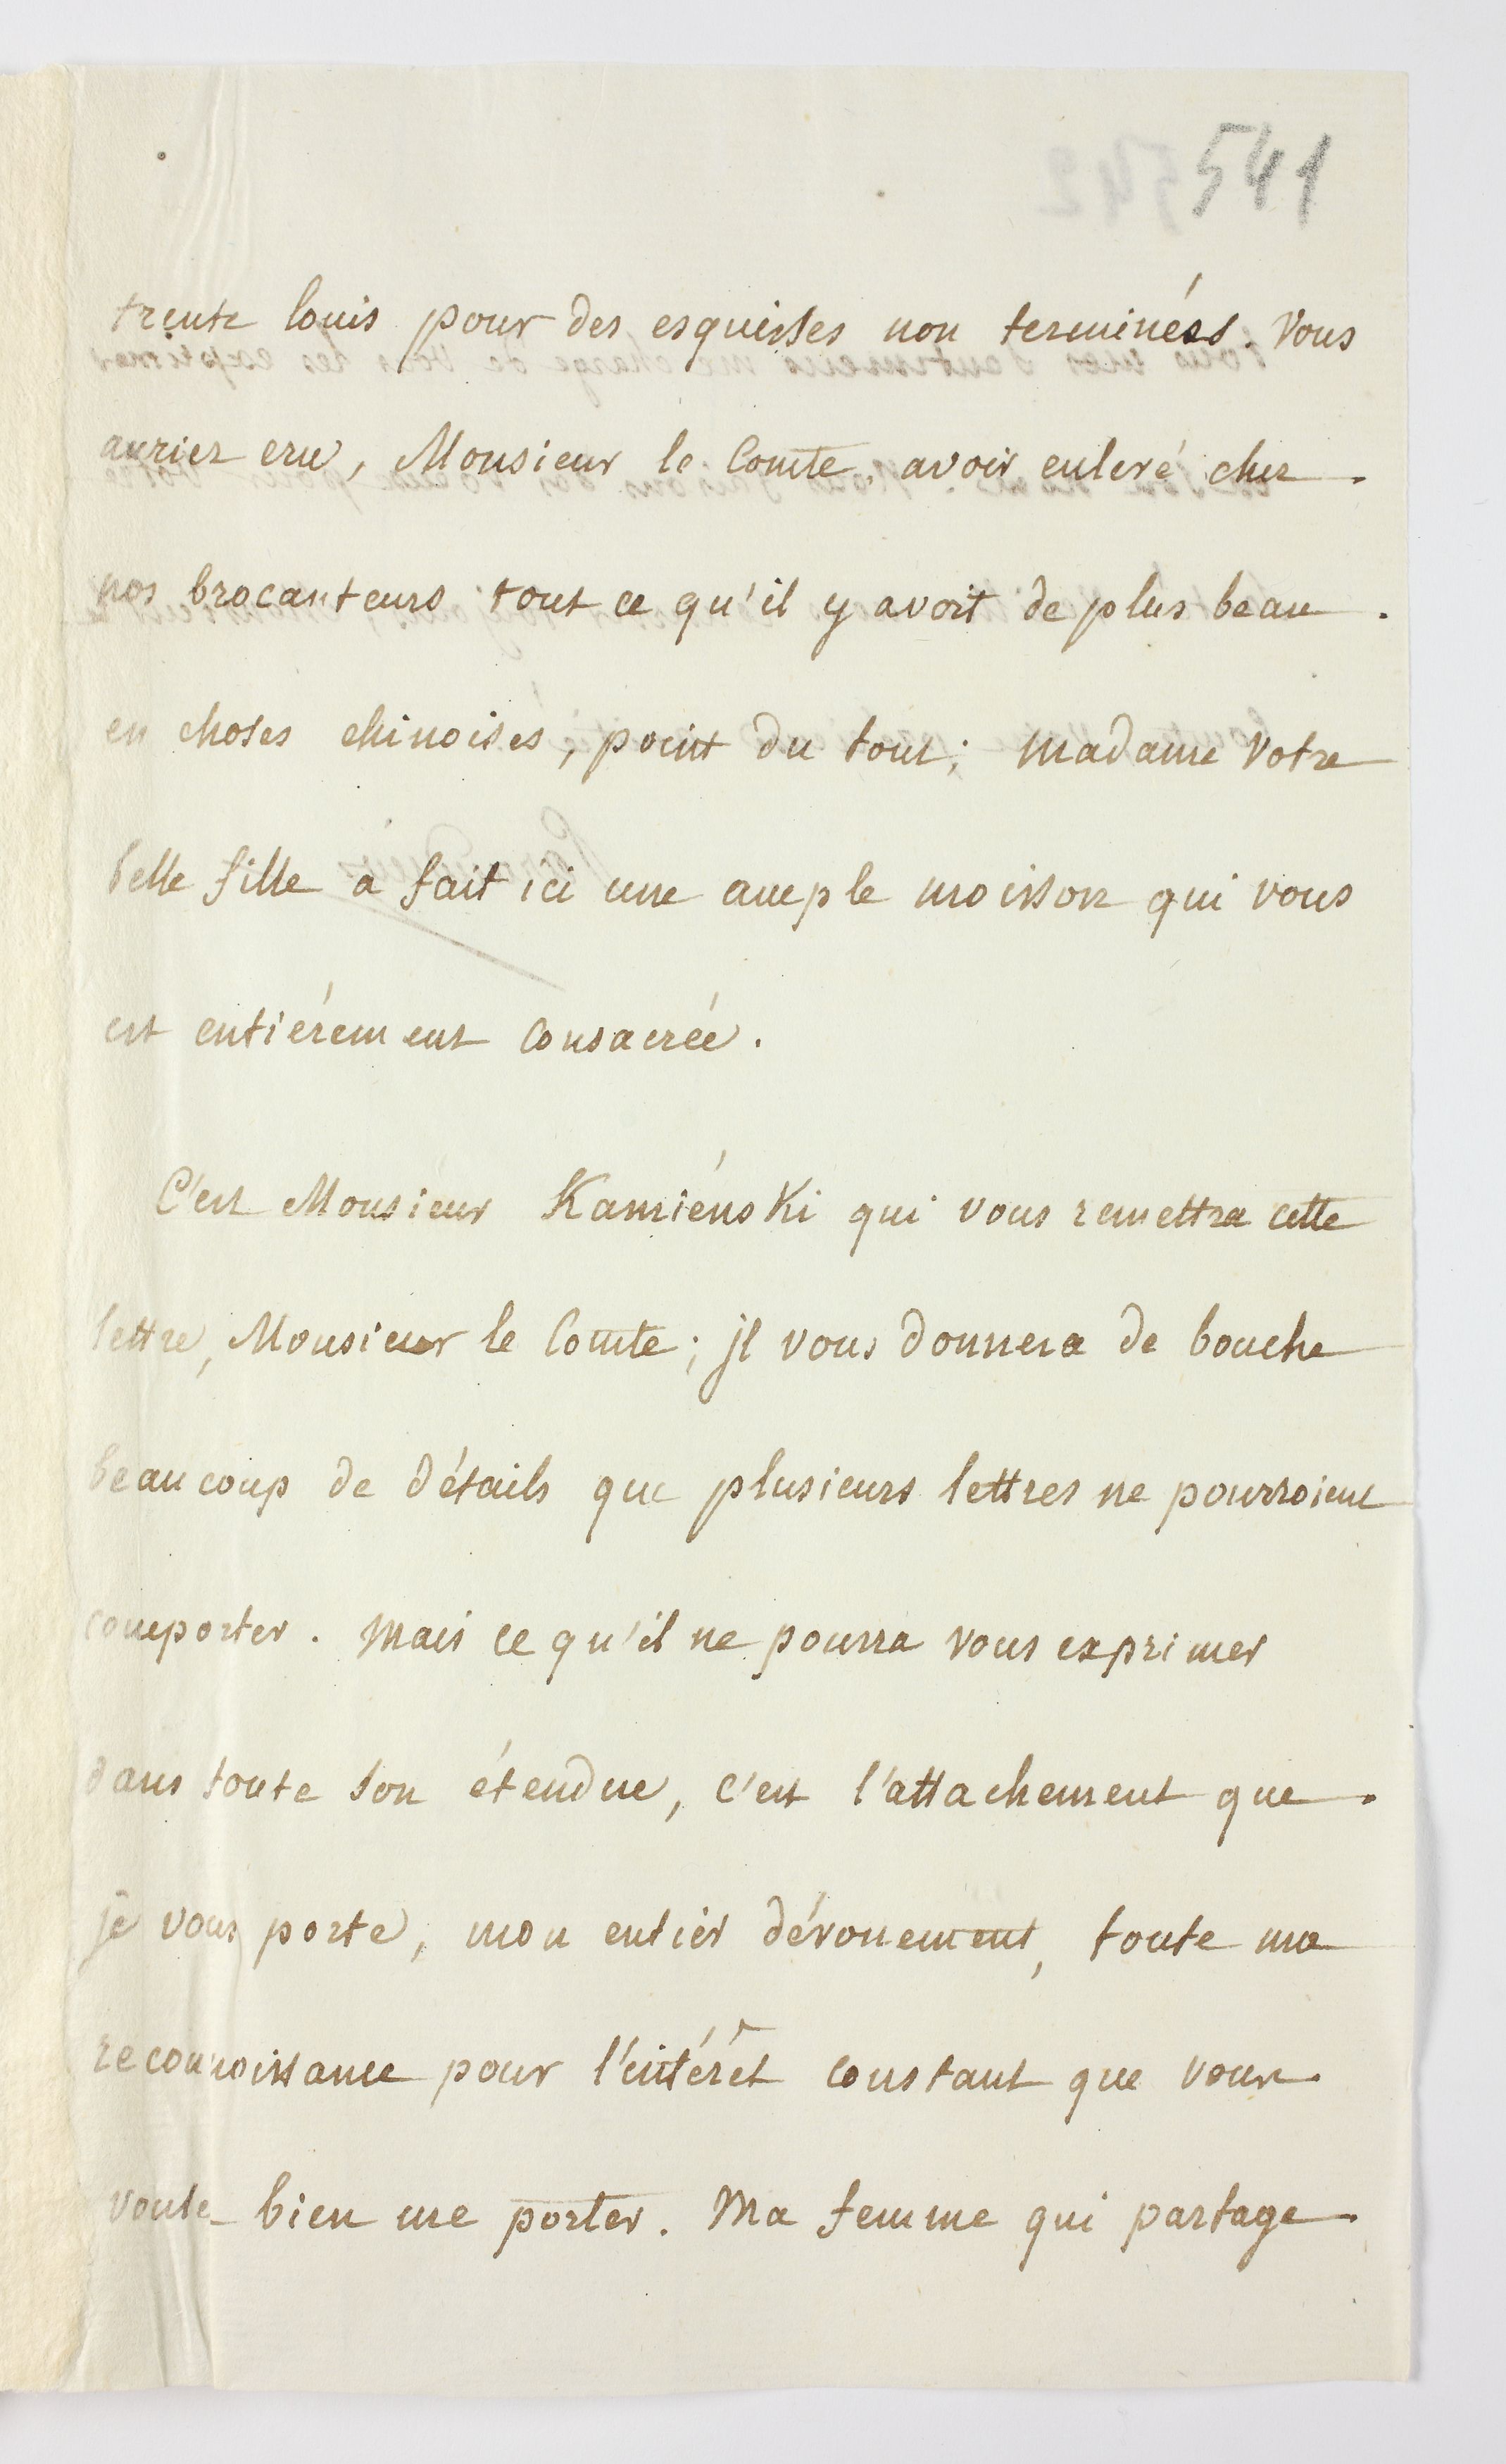 541
trente louis pour des esquisses non terminées. Vous
auriez cru, Monsieur le Comte, avoir enlevé chez
nos brocanteurs tout ce qu'il y avoit de plus beau
en choses chinoises, point du tout; Madame votre
belle fille a fait ici une ample moisson qui vous
est entiérement consacrée.
C'est Monsieur Kamiénski qui vous remettra cette
lettre, Monsieur le Comte; jl vous donnera de bouche
beaucoup de détails que plusieurs lettres ne pourroient
comporter. Mais ce qu'il ne pourra vous exprimer
dans toute son étendue, c'est l'attachement que
je vous porte, mon entier dévouement, toute ma
reconnoissance pour l'intérêt constant que vous
voulez bien me porter. Ma femme qui partage